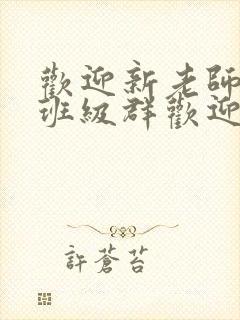 歡迎新老師
班級群歡迎
許蒼苔